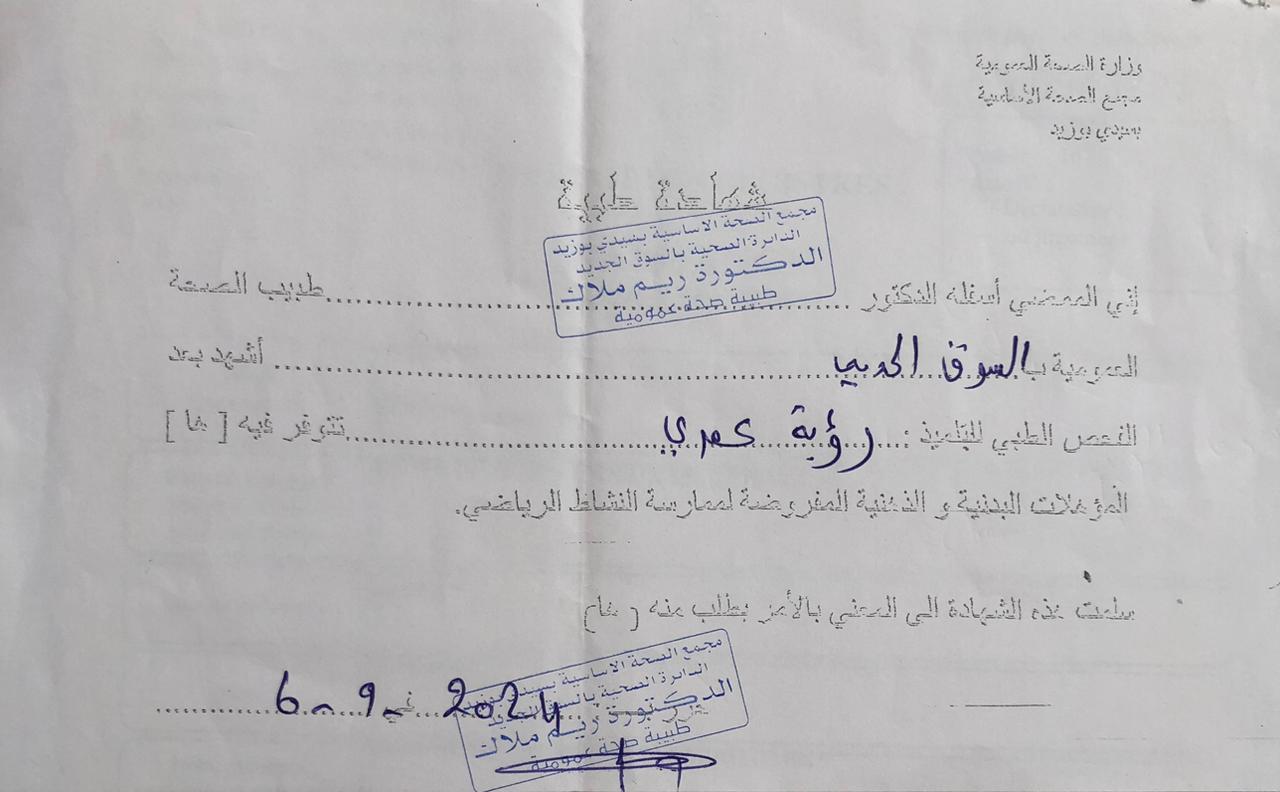 وزارة الصحة العمومية
مجمع الصحة الأساسية
بسيدي بوزيد
شهادة طبية
مجمع الصحة الاساسية بسيدي بوزيد
الدائرة الصحية بالسوق الجديد
الدكتورة ريم ملاك
طبيبة صحة عمومية
إني الممضي أسفله الدكتور ........ طبيب الصحة
العمومية ب السوق الجديد ........ أشهد بعد
الفحص الطبي للتلميذ : رؤية عمري ........ تتوفر فيه [ ها ]
المؤهلات البدنية و الذهنية المفروضة لممارسة النشاط الرياضي.
سلمت هذه الشهادة الى المعني بالأمر بطلب منه ( ها)
في 6 - 9 - 2024
مجمع الصحة الاساسية بسيدي بوزيد
الدائرة الصحية بالسوق الجديد
الدكتورة ريم ملاك
طبيبة صحة عمومية